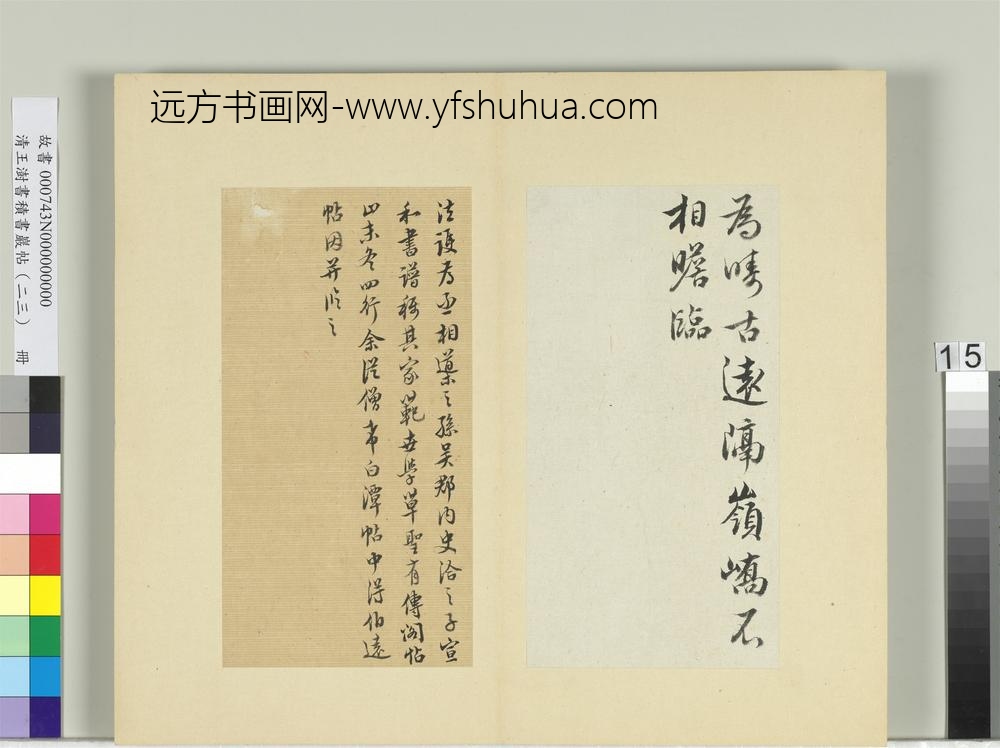 远方书画网-www.yfshuhua.com
為疇古遠隔嶺嶠不
相瞻臨
法護為丞相導之孫吴郡内史洽之子宣
和書譜稱其家範世學草聖有傳閣帖
止末冬四行余從僧常白潭帖中得伯遠
帖因并臨之
故書 000743N000000000
清王澍書積書巖帖（二三） 冊
15